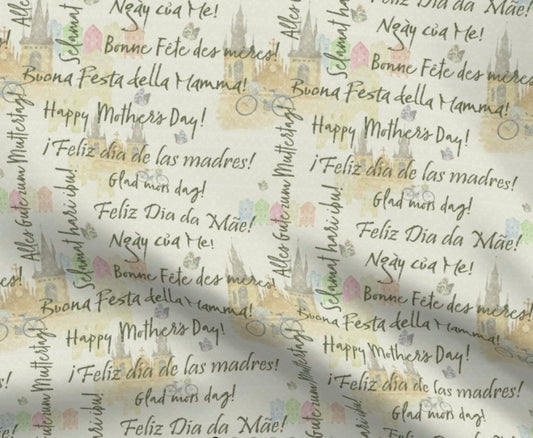 Feliz Dia da Mãe!
Ngày của Me!
Alles Gute
Selamat hari
Bonne Fête des mères!
Buona Festa della Mamma!
Happy Mother's Day!
¡Feliz dia de las madres!
Glad mon dag!
Feliz Dia da Mãe!
Ngày của Me!
Alles Gute zum Muttertag!
Selamat hari ibu!
Bonne Fête des mères!
Buona Festa della Mamma!
Happy Mother's Day!
¡Feliz dia de las madres!
Glad mon dag!
Feliz Dia da Mãe!
Ngày của Me!
Alles Gute zum Muttertag!
Selamat hari ibu!
Bonne Fête des mères!
Buona Festa della Mamma!
Happy Mother's Day!
¡Feliz dia de las madres!
Glad mon dag!
Feliz Dia da Mãe!
Ngày của Me!
Alles Gute zum Muttertag!
Selamat hari ibu!
Bonne Fête des mères!
Buona Festa della Mamma!
Happy Mother's Day!
¡Feliz dia de las madres!
Glad mon dag!